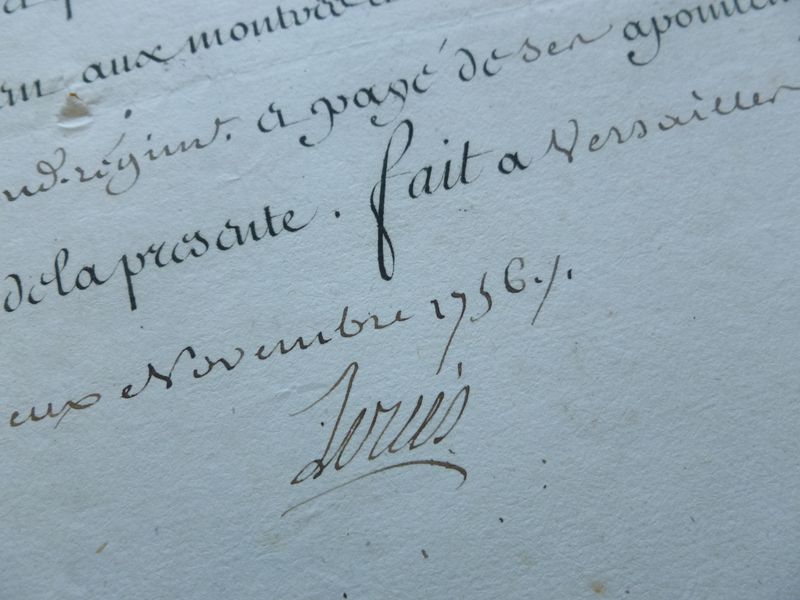 aux montres
régimt. et payé de ses apointem
de la presente. fait a Versailles
eux Novembre 1756./.
Louis